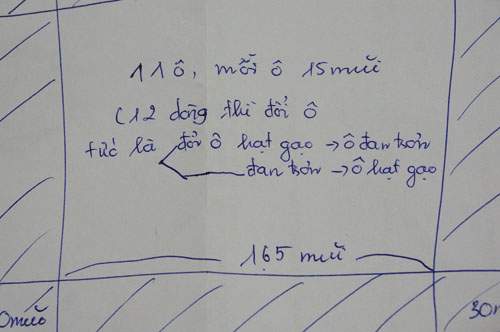 11 ô, mỗi ô 15 mũi
(12 dòng thì đổi ô
tức là đổi ô hạt gạo → ô đan trơn
đan trơn → ô hạt gạo
165 mũi
0 mũi
30m